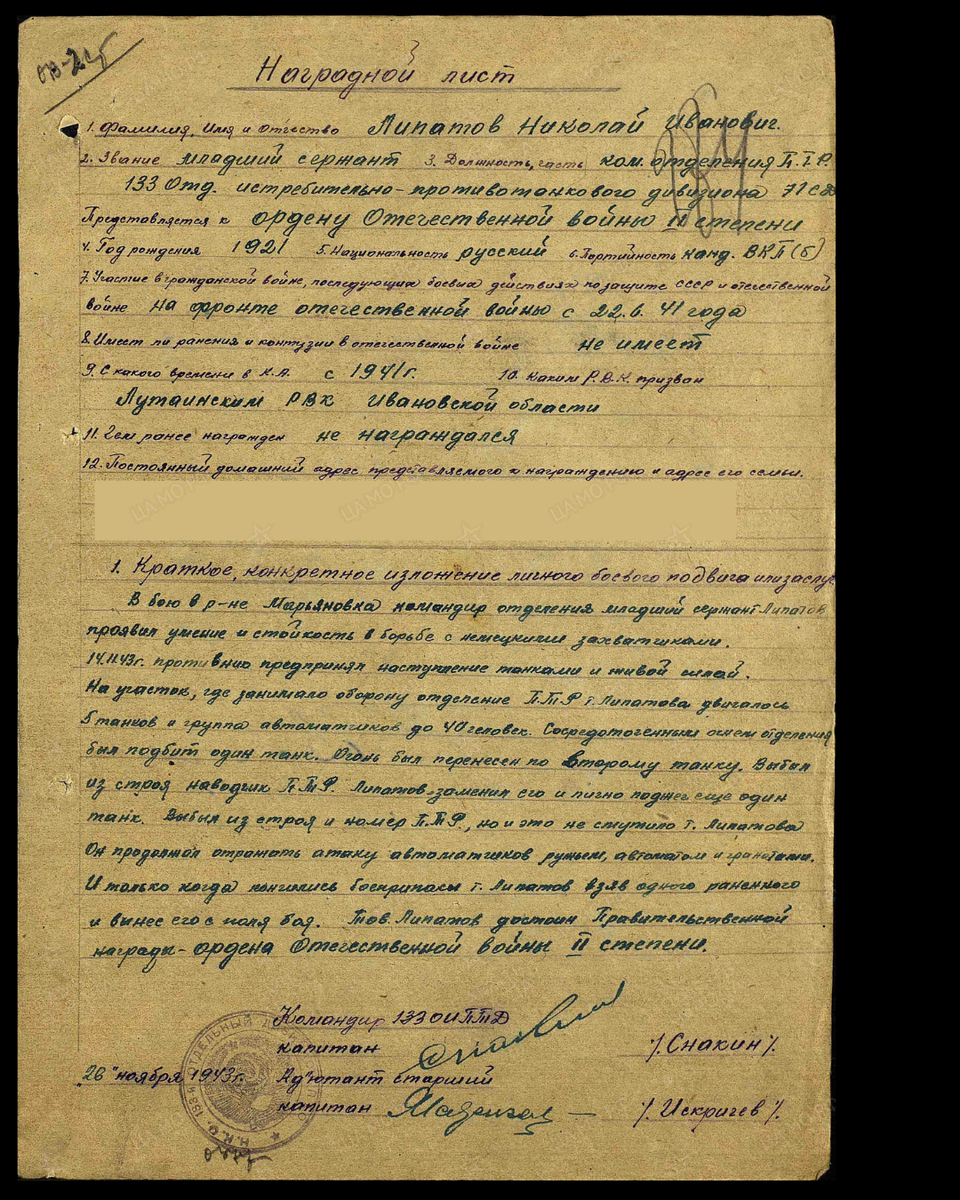 Наградной лист
1. Фамилия, Имя и Отчество Липатов Николай Иванович.
2. Звание младший сержант 3. Должность, часть ком. отделения П.Т.Р.
133 Отд. истребительно-противотанкового дивизиона 71 СД
Представляется к ордену Отечественной войны II степени
4. Год рождения 1921 5. Национальность русский 6. Партийность канд. ВКП(б)
7. Участие в гражданской войне, последующих боевых действиях по защите СССР и отечественной
войне на фронте отечественной войны с 22.6.41 года
8. Имеет ли ранения и контузии в отечественной войне не имеет
9. С какого времени в К.А. с 1941г. 10. Каким Р.В.К. призван
РВК Ивановской области
11. Чем ранее награжден не награждался
12. Постоянный домашний адрес представляемого к награждению и адрес его семьи.
1. Краткое, конкретное изложение личного боевого подвига или заслуг
В бою в р-не Марьяновка командир отделения младший сержант Липатов
проявил умение и стойкость в борьбе с немецкими захватчиками.
14.11.43г. противник предпринял наступление танками и живой силой.
На участок, где занимало оборону отделение ПТР т. Липатова двигалось
5 танков и группа автоматчиков до 40 человек. Сосредоточенным огнем отделения
был подбит один танк. Огонь был перенесен по второму танку. Выбыл
из строя наводчик ПТР. Липатов заменил его и лично поджег еще один
танк. Выбыл из строя и номер ПТР, но и это не смутило т. Липатова
Он продолжал отражать атаку автоматчиков ружьем, автоматом и гранатами.
И только когда кончились боеприпасы т. Липатов взяв одного раненного
и вынес его с поля боя. Тов. Липатов достоин Правительственной
награды - ордена Отечественной войны II степени.
Командир 133 ОИПТД
капитан /.Снакин/.
"26" ноября 1943г. Ад'ютант старший
капитан /.Искричев/.